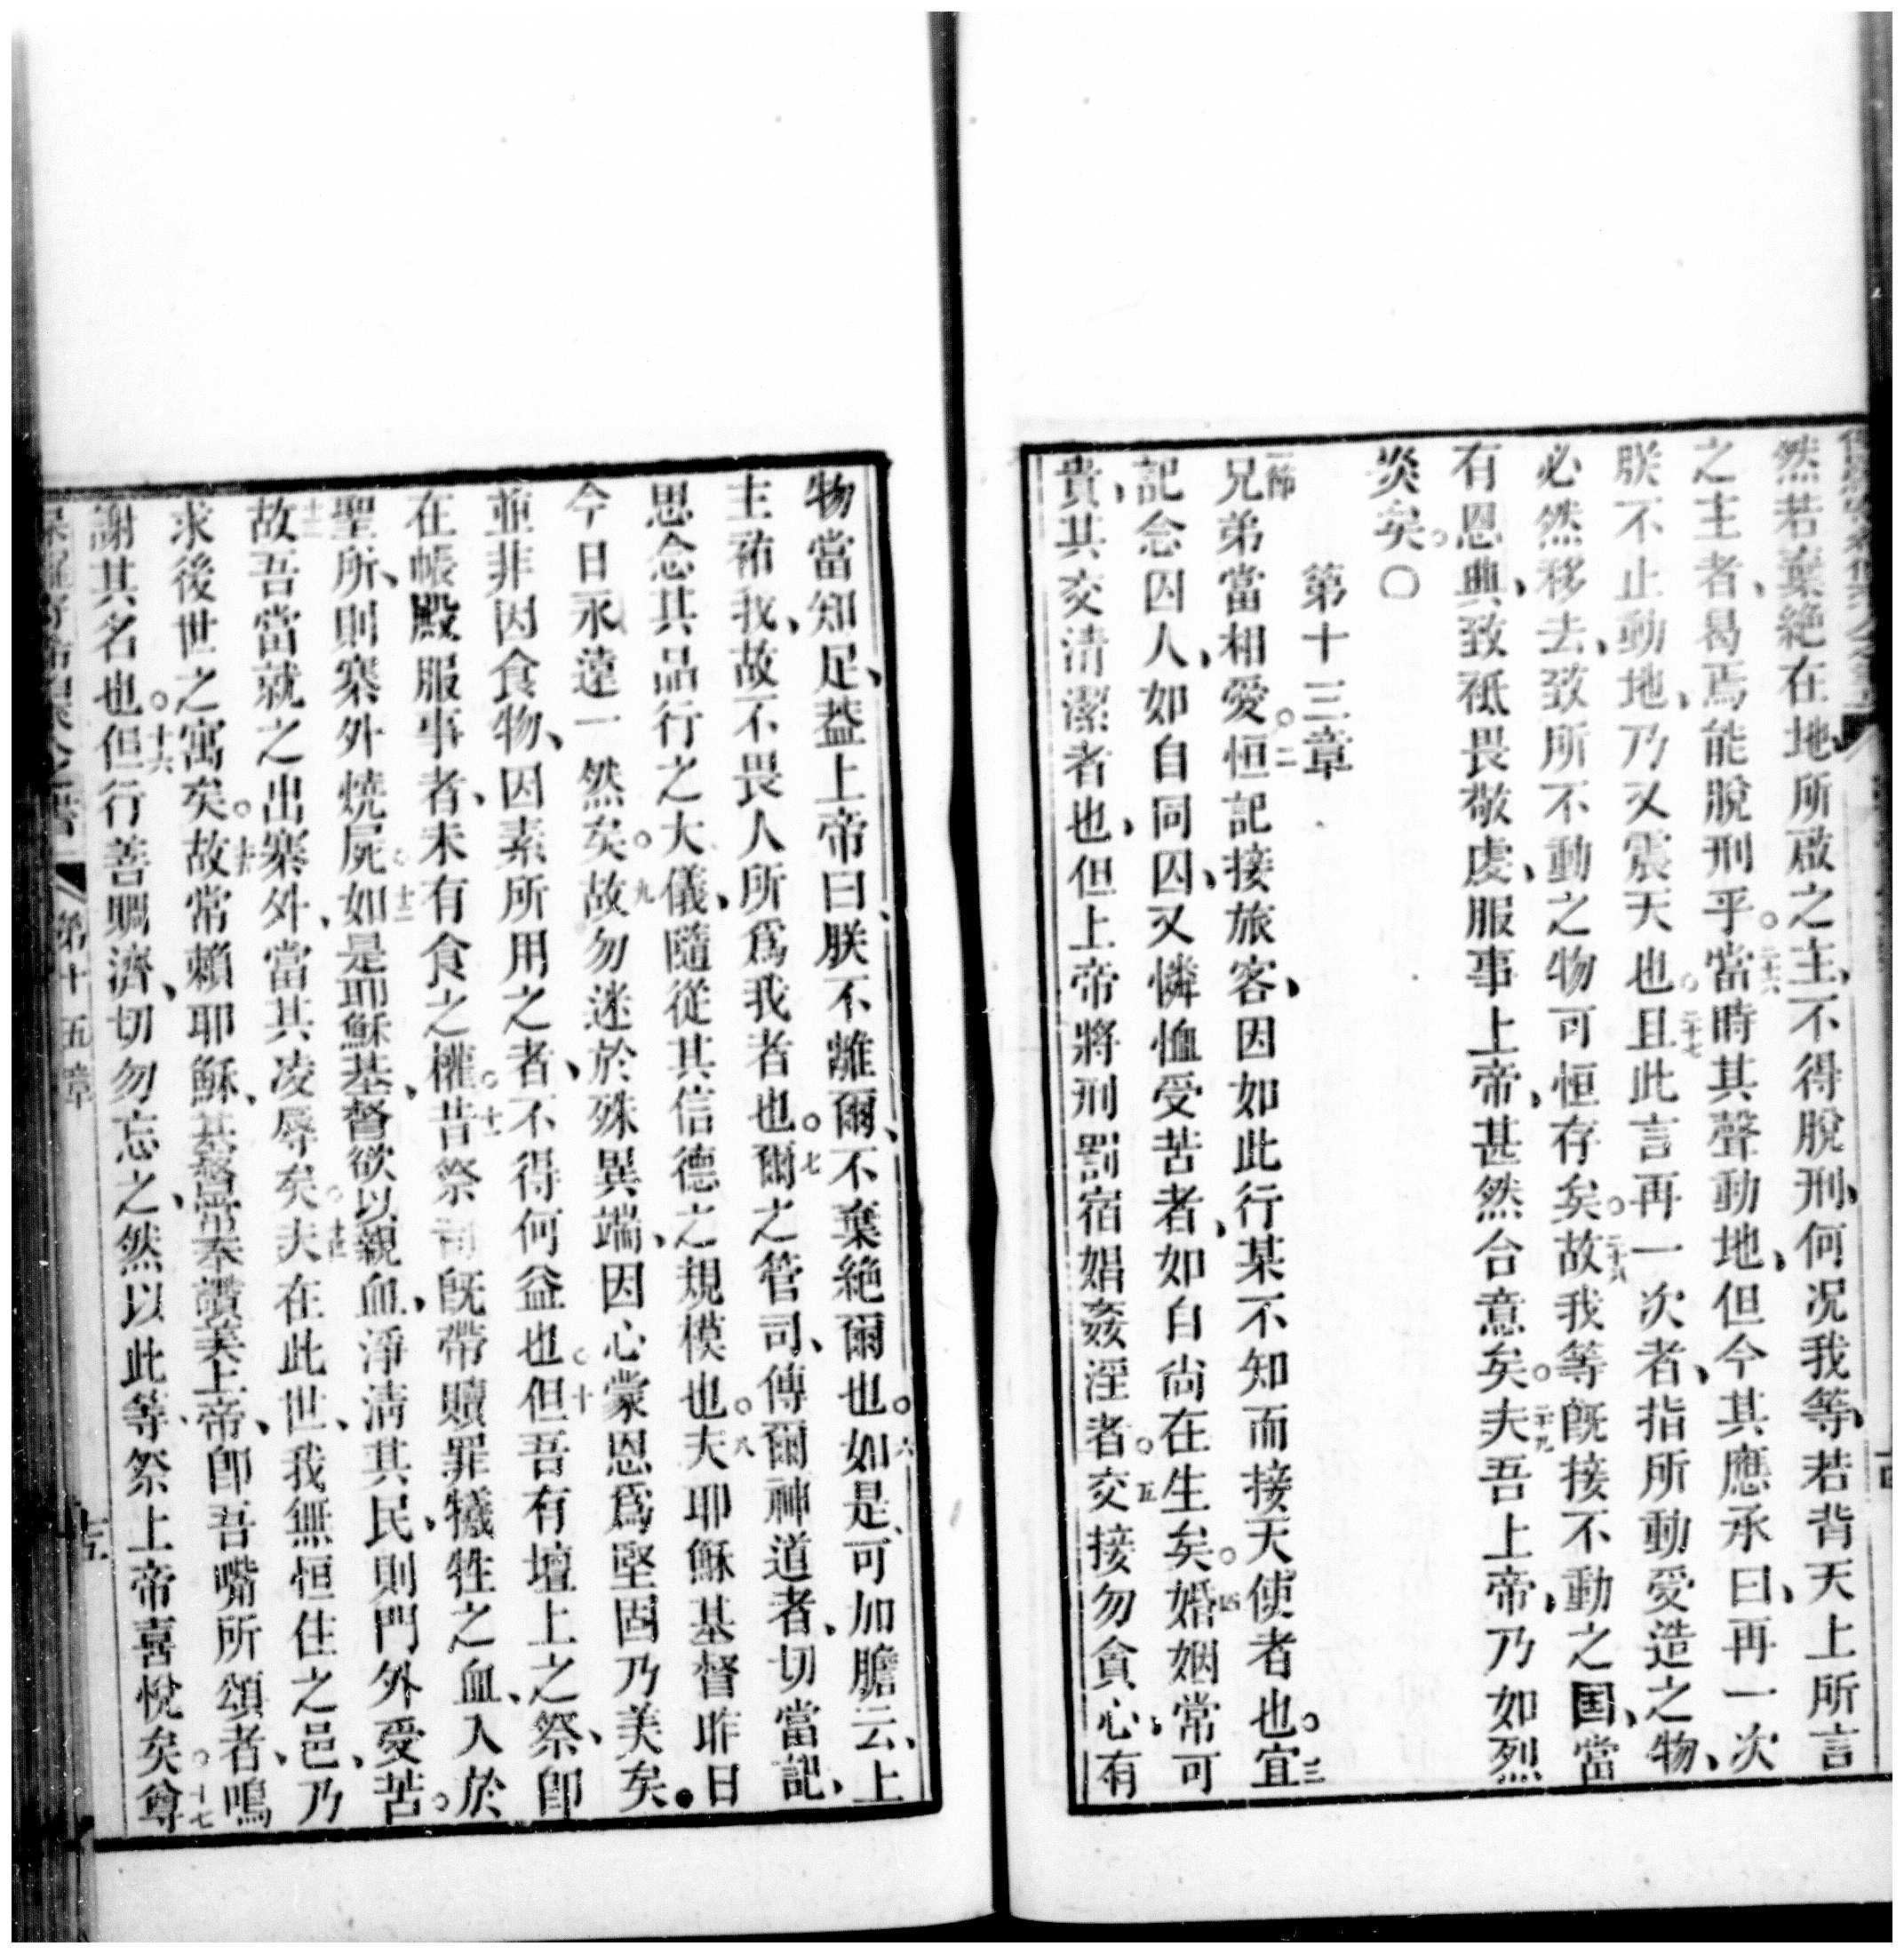 然若棄絶在地所啟之主、不得脫刑、何况我等、若背天上所言
之主者、曷焉能脫刑乎。二十六當時其聲動地、但今其應承曰、再一次
朕不止動地、乃又震天也。二十七且此言再一次者、指所動受造之物、
必然移去、致所不動之物可恒存矣。二十八故我等既接不動之国、當
有恩典、致祗畏敬虔、服事上帝、甚然合意矣。二十九夫吾上帝、乃如烈
炎矣。〇
第十三章
一節兄弟當相愛。二恒記接旅客、因如此行某不知而接天使者也。三宜
記念囚人、如自同囚、又憐恤受苦者、如自尚在生矣。四婚姻常可
貴、其交清潔者也、但上帝將刑罰宿娼姦淫者。五交接勿貪心、有
物當知足、葢上帝曰、朕不離爾、不棄絶爾也。六如是、可加膽云、上
主祐我、故不畏人所爲我者也。七爾之管司、傳爾神道者、切當記、
思念其品行之大儀、隨從其信德之規模也。八夫耶穌基督昨日
今日永遠一然矣。九故勿迷於殊異端、因心蒙恩爲堅固乃美矣。
並非因食物、因素所用之者、不得何益也。十但吾有壇上之祭、卽
在帳殿服事者、未有食之權。十一昔祭司既帶贖罪犧牲之血、入於
聖所、則寨外燒屍。十二如是耶穌基督欲以親血、淨淸其民、則門外受苦。
十三故吾當就之出寨外、當其凌辱矣。十四夫在此世、我無恒住之邑、乃
求後世之寓矣。十五故常賴耶穌、基督當奉讚美上帝、卽吾嘴所頌者、鳴
謝其名也。十六但行善賙濟、切勿忘之、然以此等、祭上帝喜悅矣。十七尊
第十五章